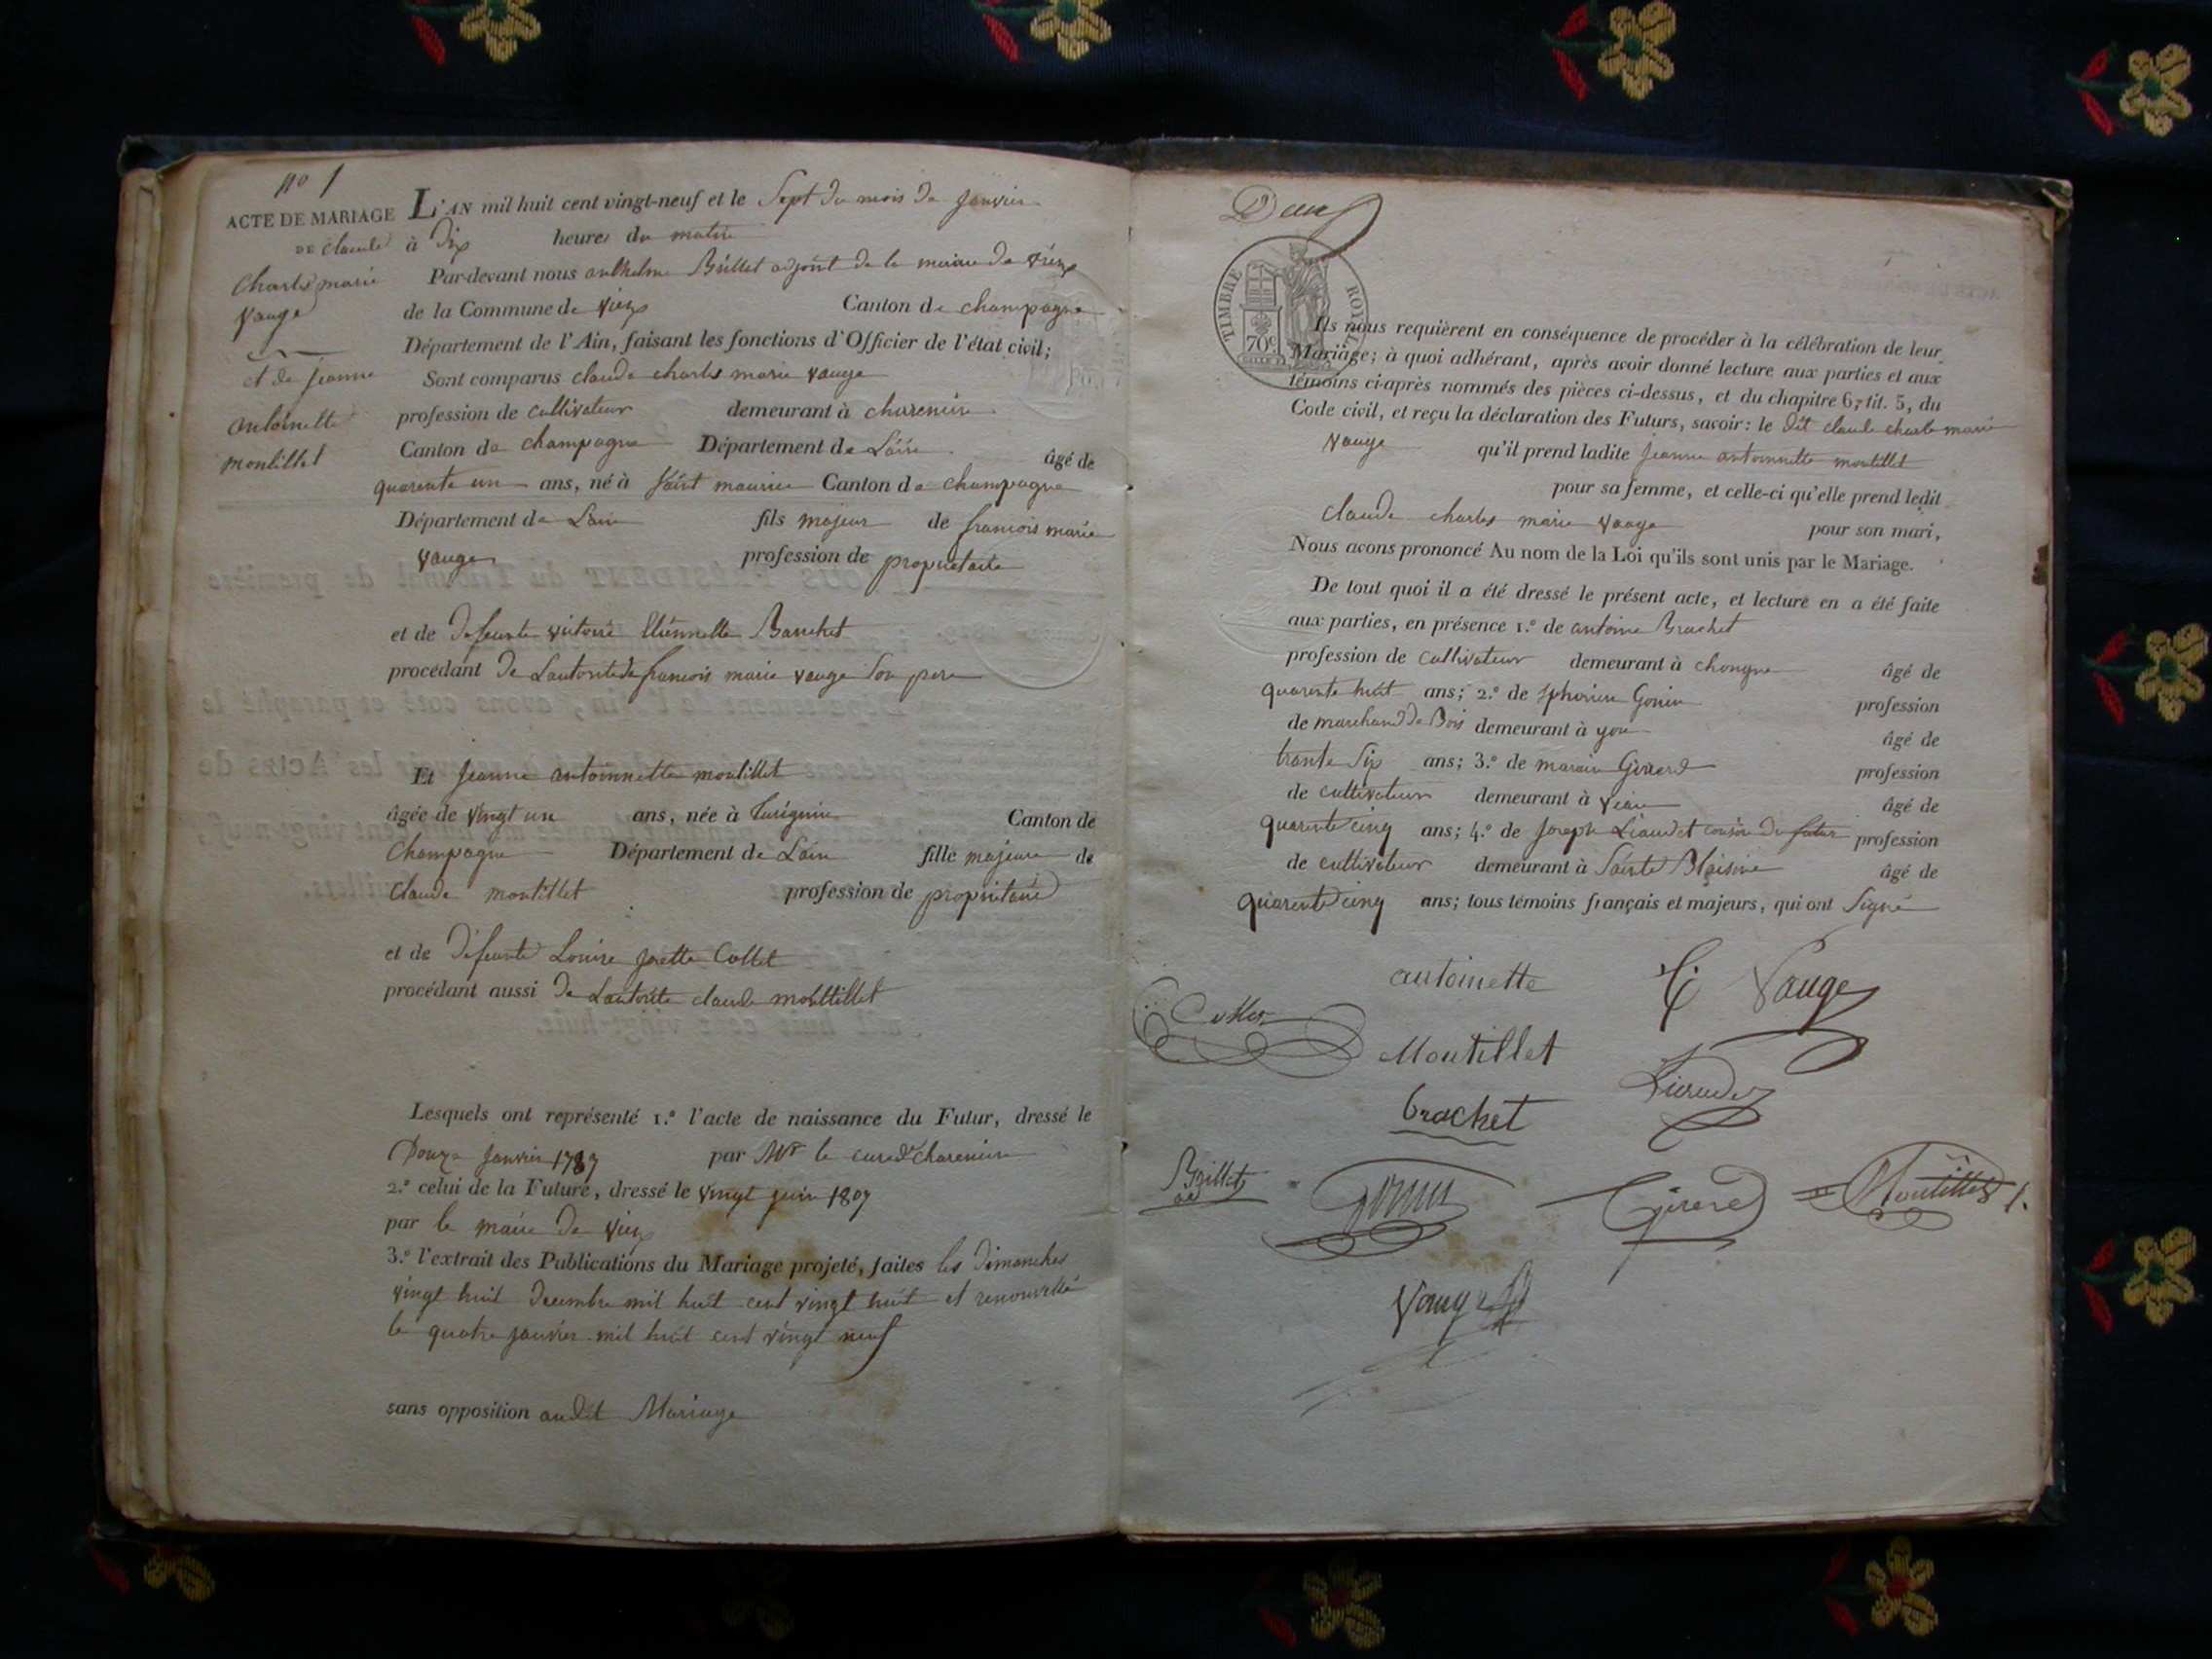 nº 1
ACTE DE MARIAGE
DE claude
Charles marie
Vauge
et de jeanne
antoinette
montillet
L'AN mil huit cent vingt-neuf et le Sept du mois de janvier
à Dix heures du matin
Par-devant nous anthelme Brillet adjoint de la mairie de vieu
de la Commune de vieu Canton de champagne
Département de l'Ain, faisant les fonctions d'Officier de l'état civil;
Sont comparus claude charles marie vauge
profession de cultivateur demeurant à charencin
Canton de champagne Département de Lain âgé de
quarente un ans, né à saint maurice Canton de champagne
Département de Lain fils majeur de francois marie
vauge profession de propriétaire
et de defeunte victoire Etiennette
procédant de Lautorité de francois marie vauge son pere
Et jeanne antoinnette montillet
âgée de vingt un ans, née à Canton de
Champagne Département de Lain fille majeure de
Claude montillet profession de propriétaire
et de Defeunte Louise josette Collet
procédant aussi de Lautorité claude montillet
Lesquels ont représenté 1.º l'acte de naissance du Futur, dressé le
Douze janvier 1787 par Mr le curé de charencin
2.º celui de la Future, dressé le vingt juin 1807
par le maire de vieu
3.º l'extrait des Publications du Mariage projeté, faites les dimanches
vingt huit decembre mil huit cent vingt huit et renouvellé
le quatre janvier mil huit cent vingt neuf
sans opposition audit Mariage
Deux
TIMBRE ROYAL
70c
Ils nous requièrent en conséquence de procéder à la célébration de leur
Mariage; à quoi adhérant, après avoir donné lecture aux parties et aux
témoins ci-après nommés des pièces ci-dessus, et du chapitre 6, tit. 5, du
Code civil, et reçu la déclaration des Futurs, savoir: le dit claude charle marie
vauge qu'il prend ladite jeanne antoinnette montillet
pour sa femme, et celle-ci qu'elle prend ledit
claude charles marie vauge pour son mari,
Nous avons prononcé Au nom de la Loi qu'ils sont unis par le Mariage.
De tout quoi il a été dressé le présent acte, et lecture en a été faite
aux parties, en présence 1.º de antoine Brachet
profession de cultivateur demeurant à chongne âgé de
quarente huit ans; 2.º de Gonin profession
de marchand de Bois demeurant à yon âgé de
trante six ans; 3.º de marin Girerd profession
de cultivateur demeurant à vieu âgé de
quarente cinq ans; 4.º de joseph Liaudet cousin du futur profession
de cultivateur demeurant à Sainte Blaisine âgé de
quarente cinq ans; tous témoins français et majeurs, qui ont signé
antoinette C Vauge
Collet
Montillet
Liaudet
brachet
Brillet
adj
Gonin
Girerd
Montillet
Vauge